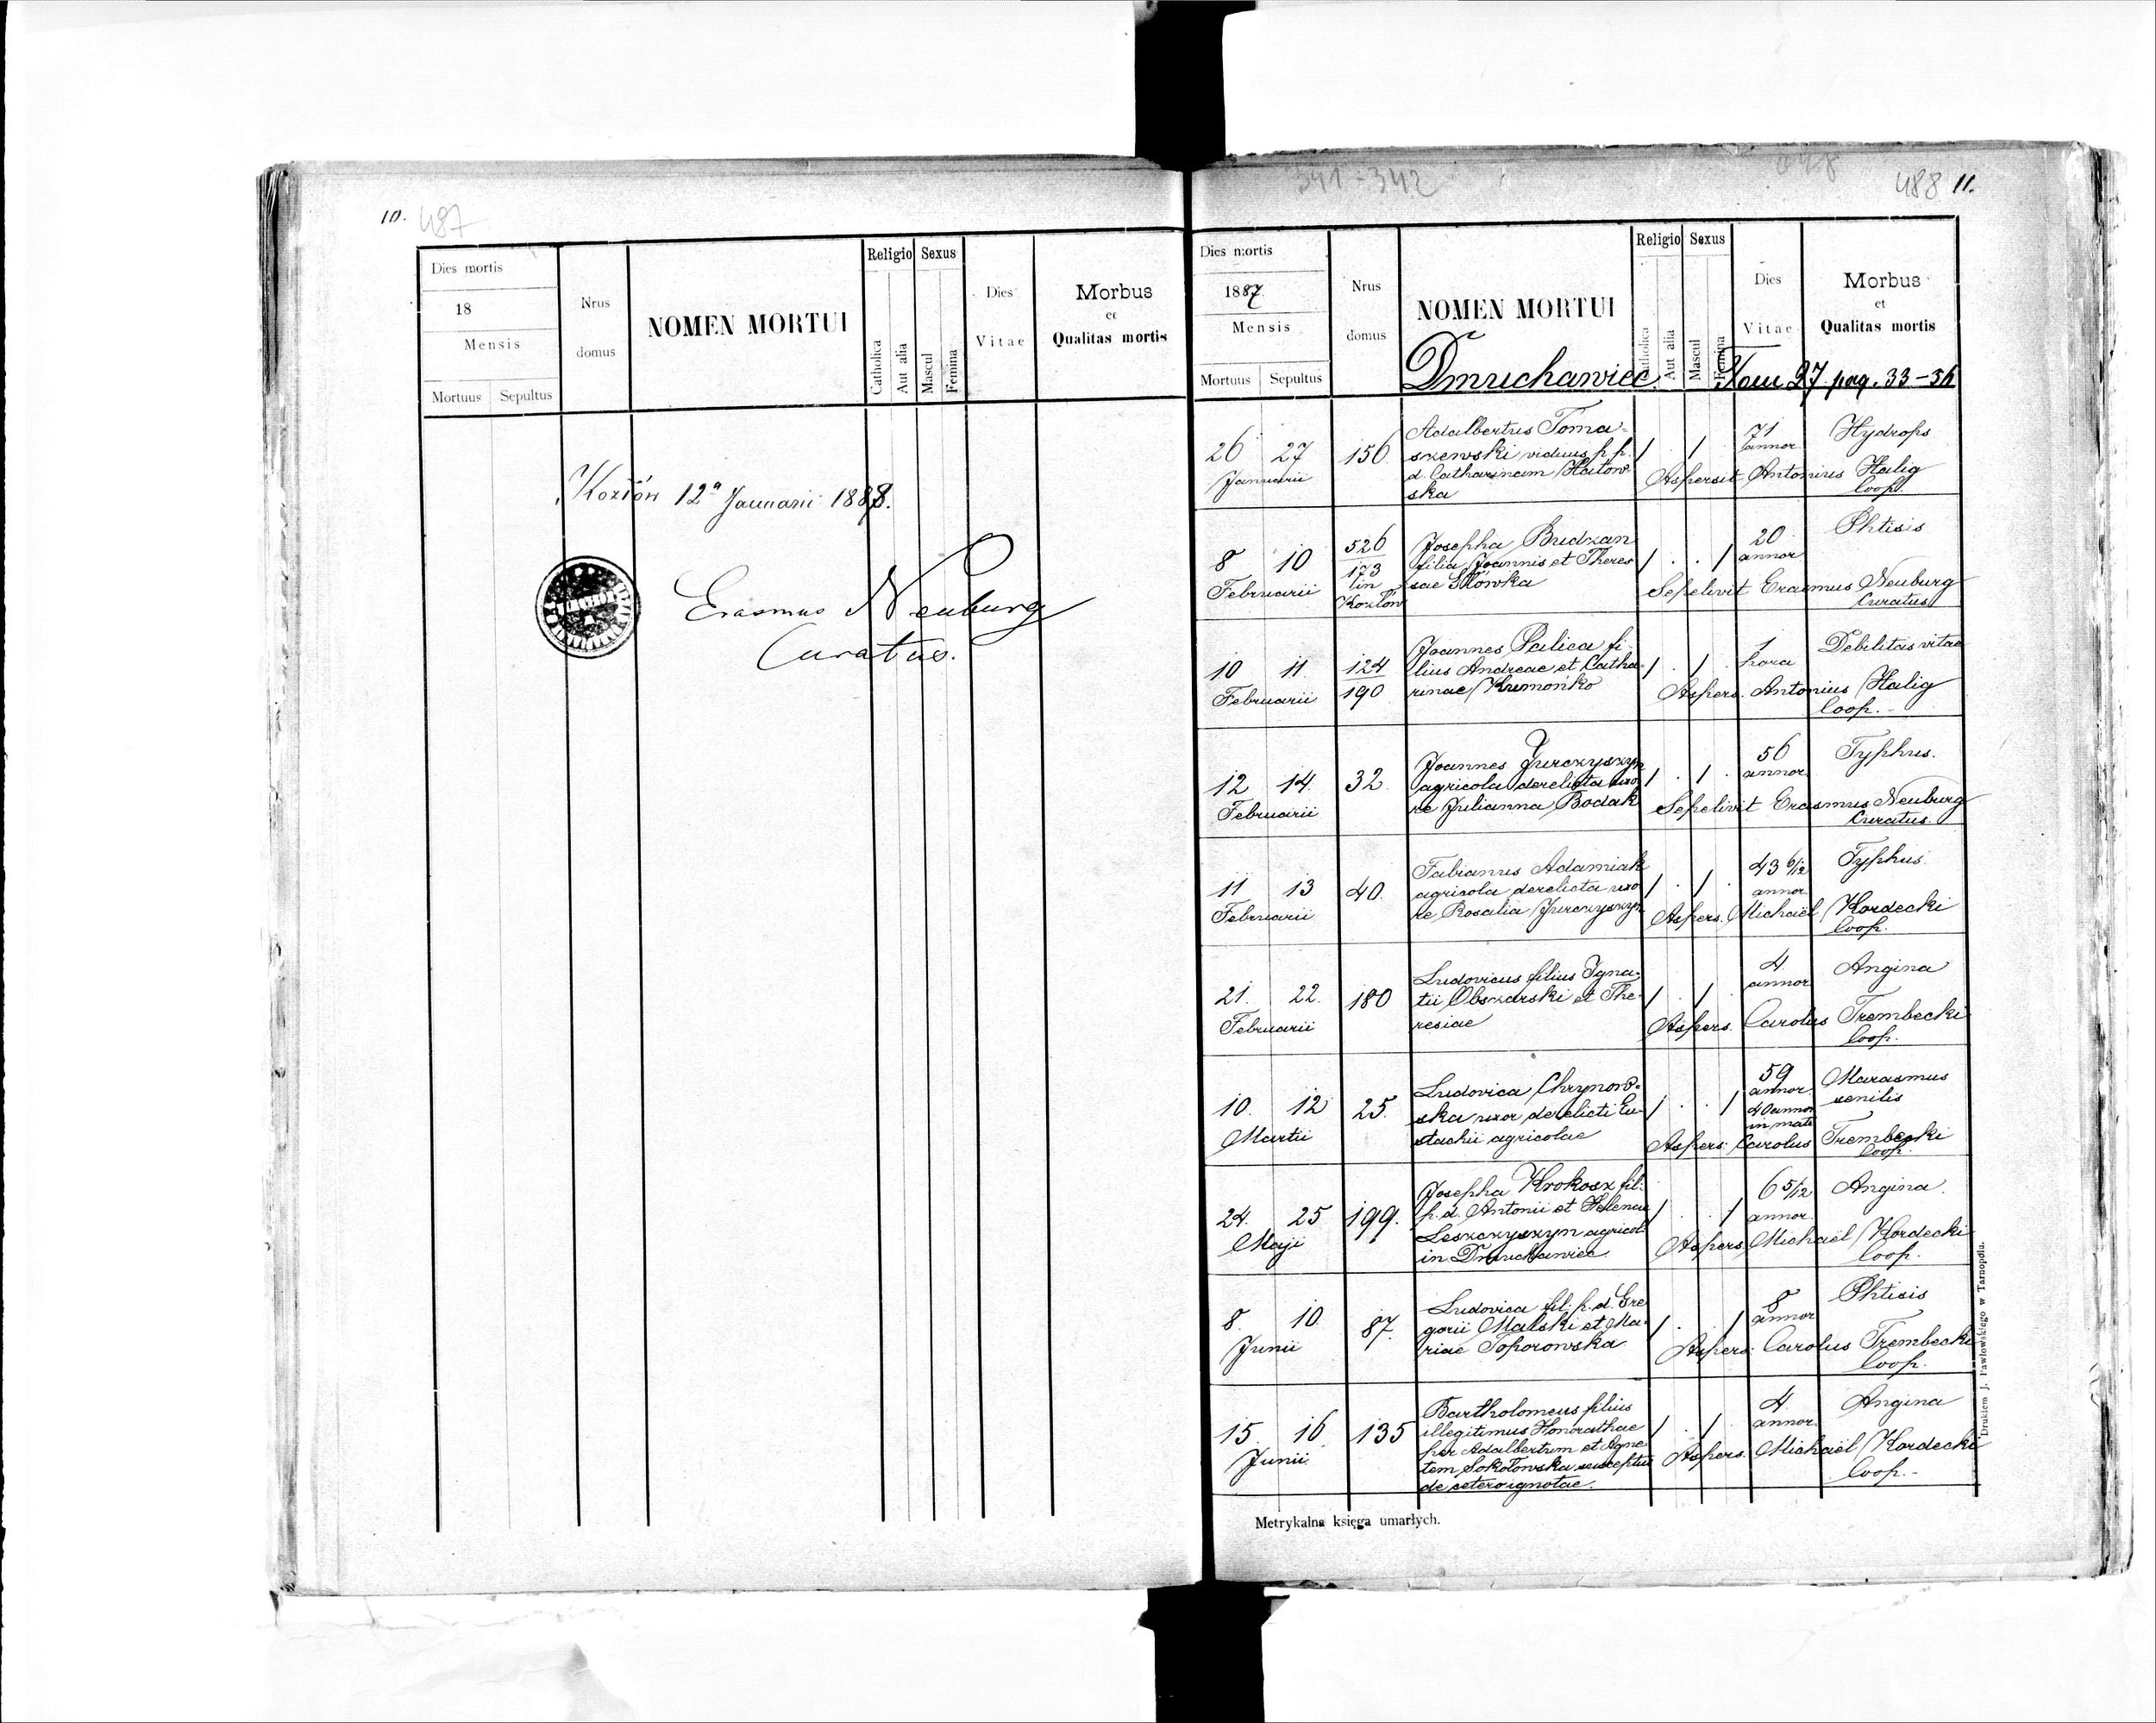 10. 487
Dies mortis
18
Mensis
Mortuus Sepultus
Nrus domus
NOMEN MORTUI
Religio
Catholica
Aut alia
Sexus
Mascul
Femina
Dies Vitae
Morbus
et
Qualitas mortis
Kozłów 12a Januarii 1888.
Erasmus Neuburg
Curatus.
341-342
488 11.
Dies mortis
1887
Mensis
Mortuus Sepultus
Nrus domus
NOMEN MORTUI
Dmuchawiec
Religio
Catholica
Aut alia
Sexus
Mascul
Femina
Dies
Vitae
Morbus
et
Qualitas mortis
Tom 27 pag. 33-56
26 27
Januarii
156
Adalbertus Toma-
szewski viduus p. p.
d. Catharinam Hatow-
ska
/ . / .
71
annor
Hydrops
Aspersit Antonius Halig
Coop.
8 10
Februarii
526
173
in
Kozłów
Josepha Budzan
filia Joannis et There-
sae Głowka
/ . . /
20
annor
Phtisis
Sepelivit Erasmus Neuburg
Curatus
10 11
Februarii
124
190
Joannes Palica fi-
lius Andreae et Catha-
rinae Krzmońko
/ . / .
1
hora
Debilitas vitae
Aspers. Antonius Halig
Coop.
12 14
Februarii
32
Joannes Jurczyszyn
agricola derelicta uxo
re Julianna Bodak
/ . / .
56
annor
Typhus.
Sepelivit Erasmus Neuburg
Curatus
11 13
Februarii
40.
Fabianus Adamiak
agricola derelicta uxo
re Rosalia Jurczyszyn
/ . / .
43 6/12
annor
Typhus
Aspers. Michaël Kordecki
Coop.
21. 22.
Februarii
180
Ludovicus filius Igna-
tii Obszarski et The-
resiae
/ . / .
4
annor
Angina
Aspers. Carolus Trembecki
Coop.
10. 12
Martii
25.
Ludovica Chrynow-
ska uxor derelicti Eu-
stachii agricolae
/ . . /
59
annor
40 annor
in mat.
Marasmus
senilis
Aspers. Carolus Trembecki
Coop.
24. 25
Maji
199.
Josepha Krokosz fil.
p. d. Antonii et Helenae
Leszczyszyn agricol.
in Dmuchawiec
/ . . /
6 5/12
annor
Angina.
Aspers. Michaël Kordecki
Coop.
8. 10.
Junii
87.
Ludovica fil. p. d. Gre
gorii Malski et Ma-
riae Toporowska
/ . . /
8
annor
Phtisis
Aspers. Carolus Trembecki
Coop.
15. 16
Junii
135
Bartholomeus filius
illegitimus Honorathae
per Adalbertum et Agne
tem Sokołowska susceptus
de cetero ignotae.
/ . / .
4
annor
Angina
Aspers. Michaël Kordecki
Coop.
Metrykalna księga umarłych.
Drukiem J. Pawłowskiego w Tarnopolu.